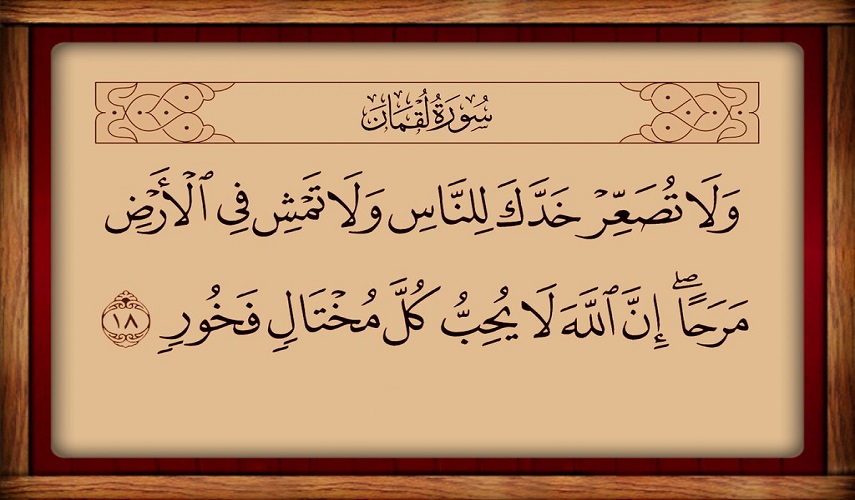 سُورَةُ لُقْمَانَ
وَلَا تُصَعِّرْ خَدَّكَ لِلنَّاسِ وَلَا تَمْشِ فِي ٱلْأَرْضِ
مَرَحًا ۖ إِنَّ ٱللَّهَ لَا يُحِبُّ كُلَّ مُخْتَالٍ فَخُورٍ ١٨